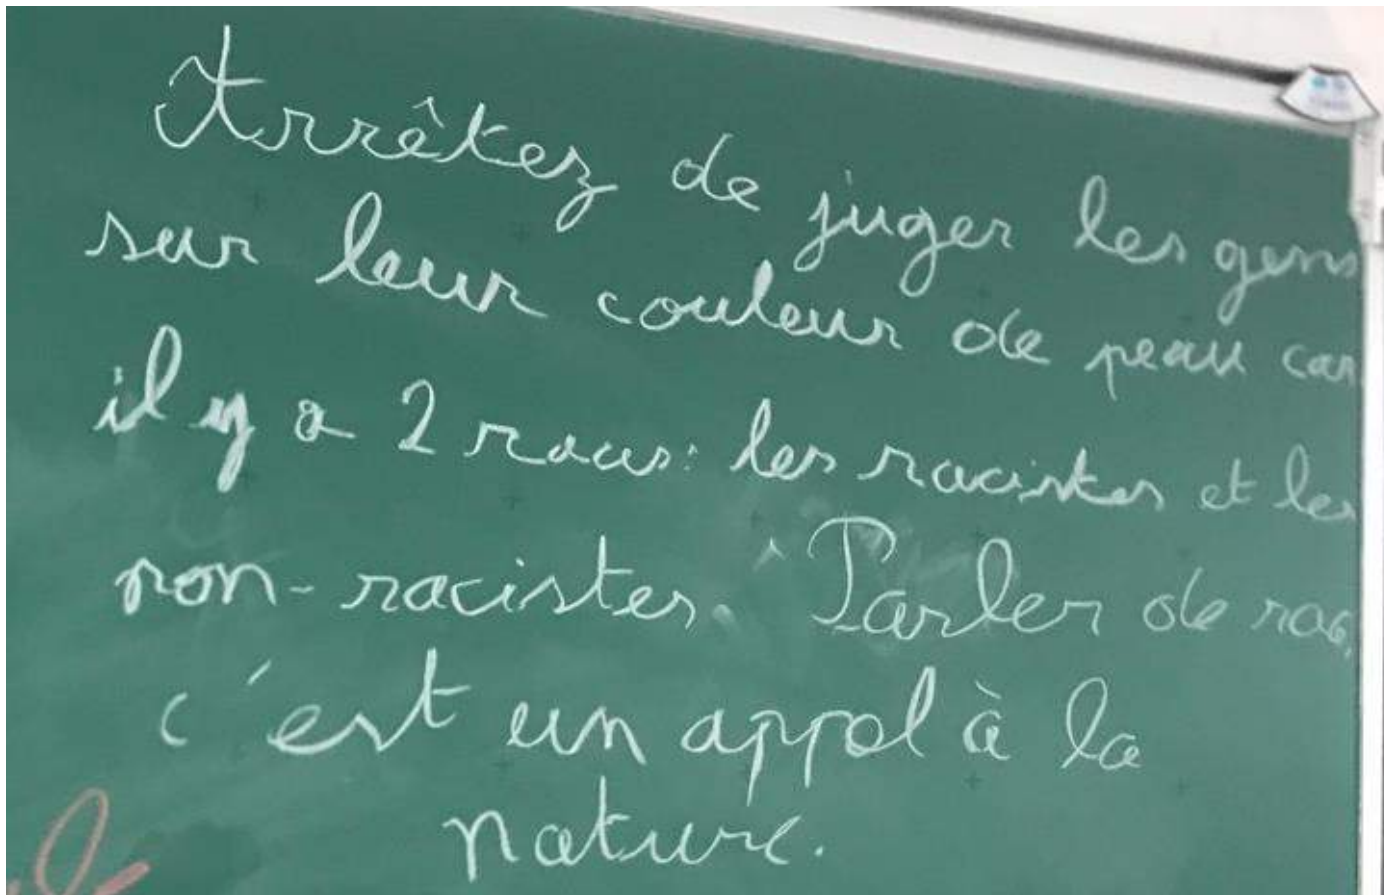 Arrêtez de juger les gens
sur leur couleur de peau car
il y a 2 races: les racistes et les
non-racistes. Parler de race,
c'est un appel à la
nature.